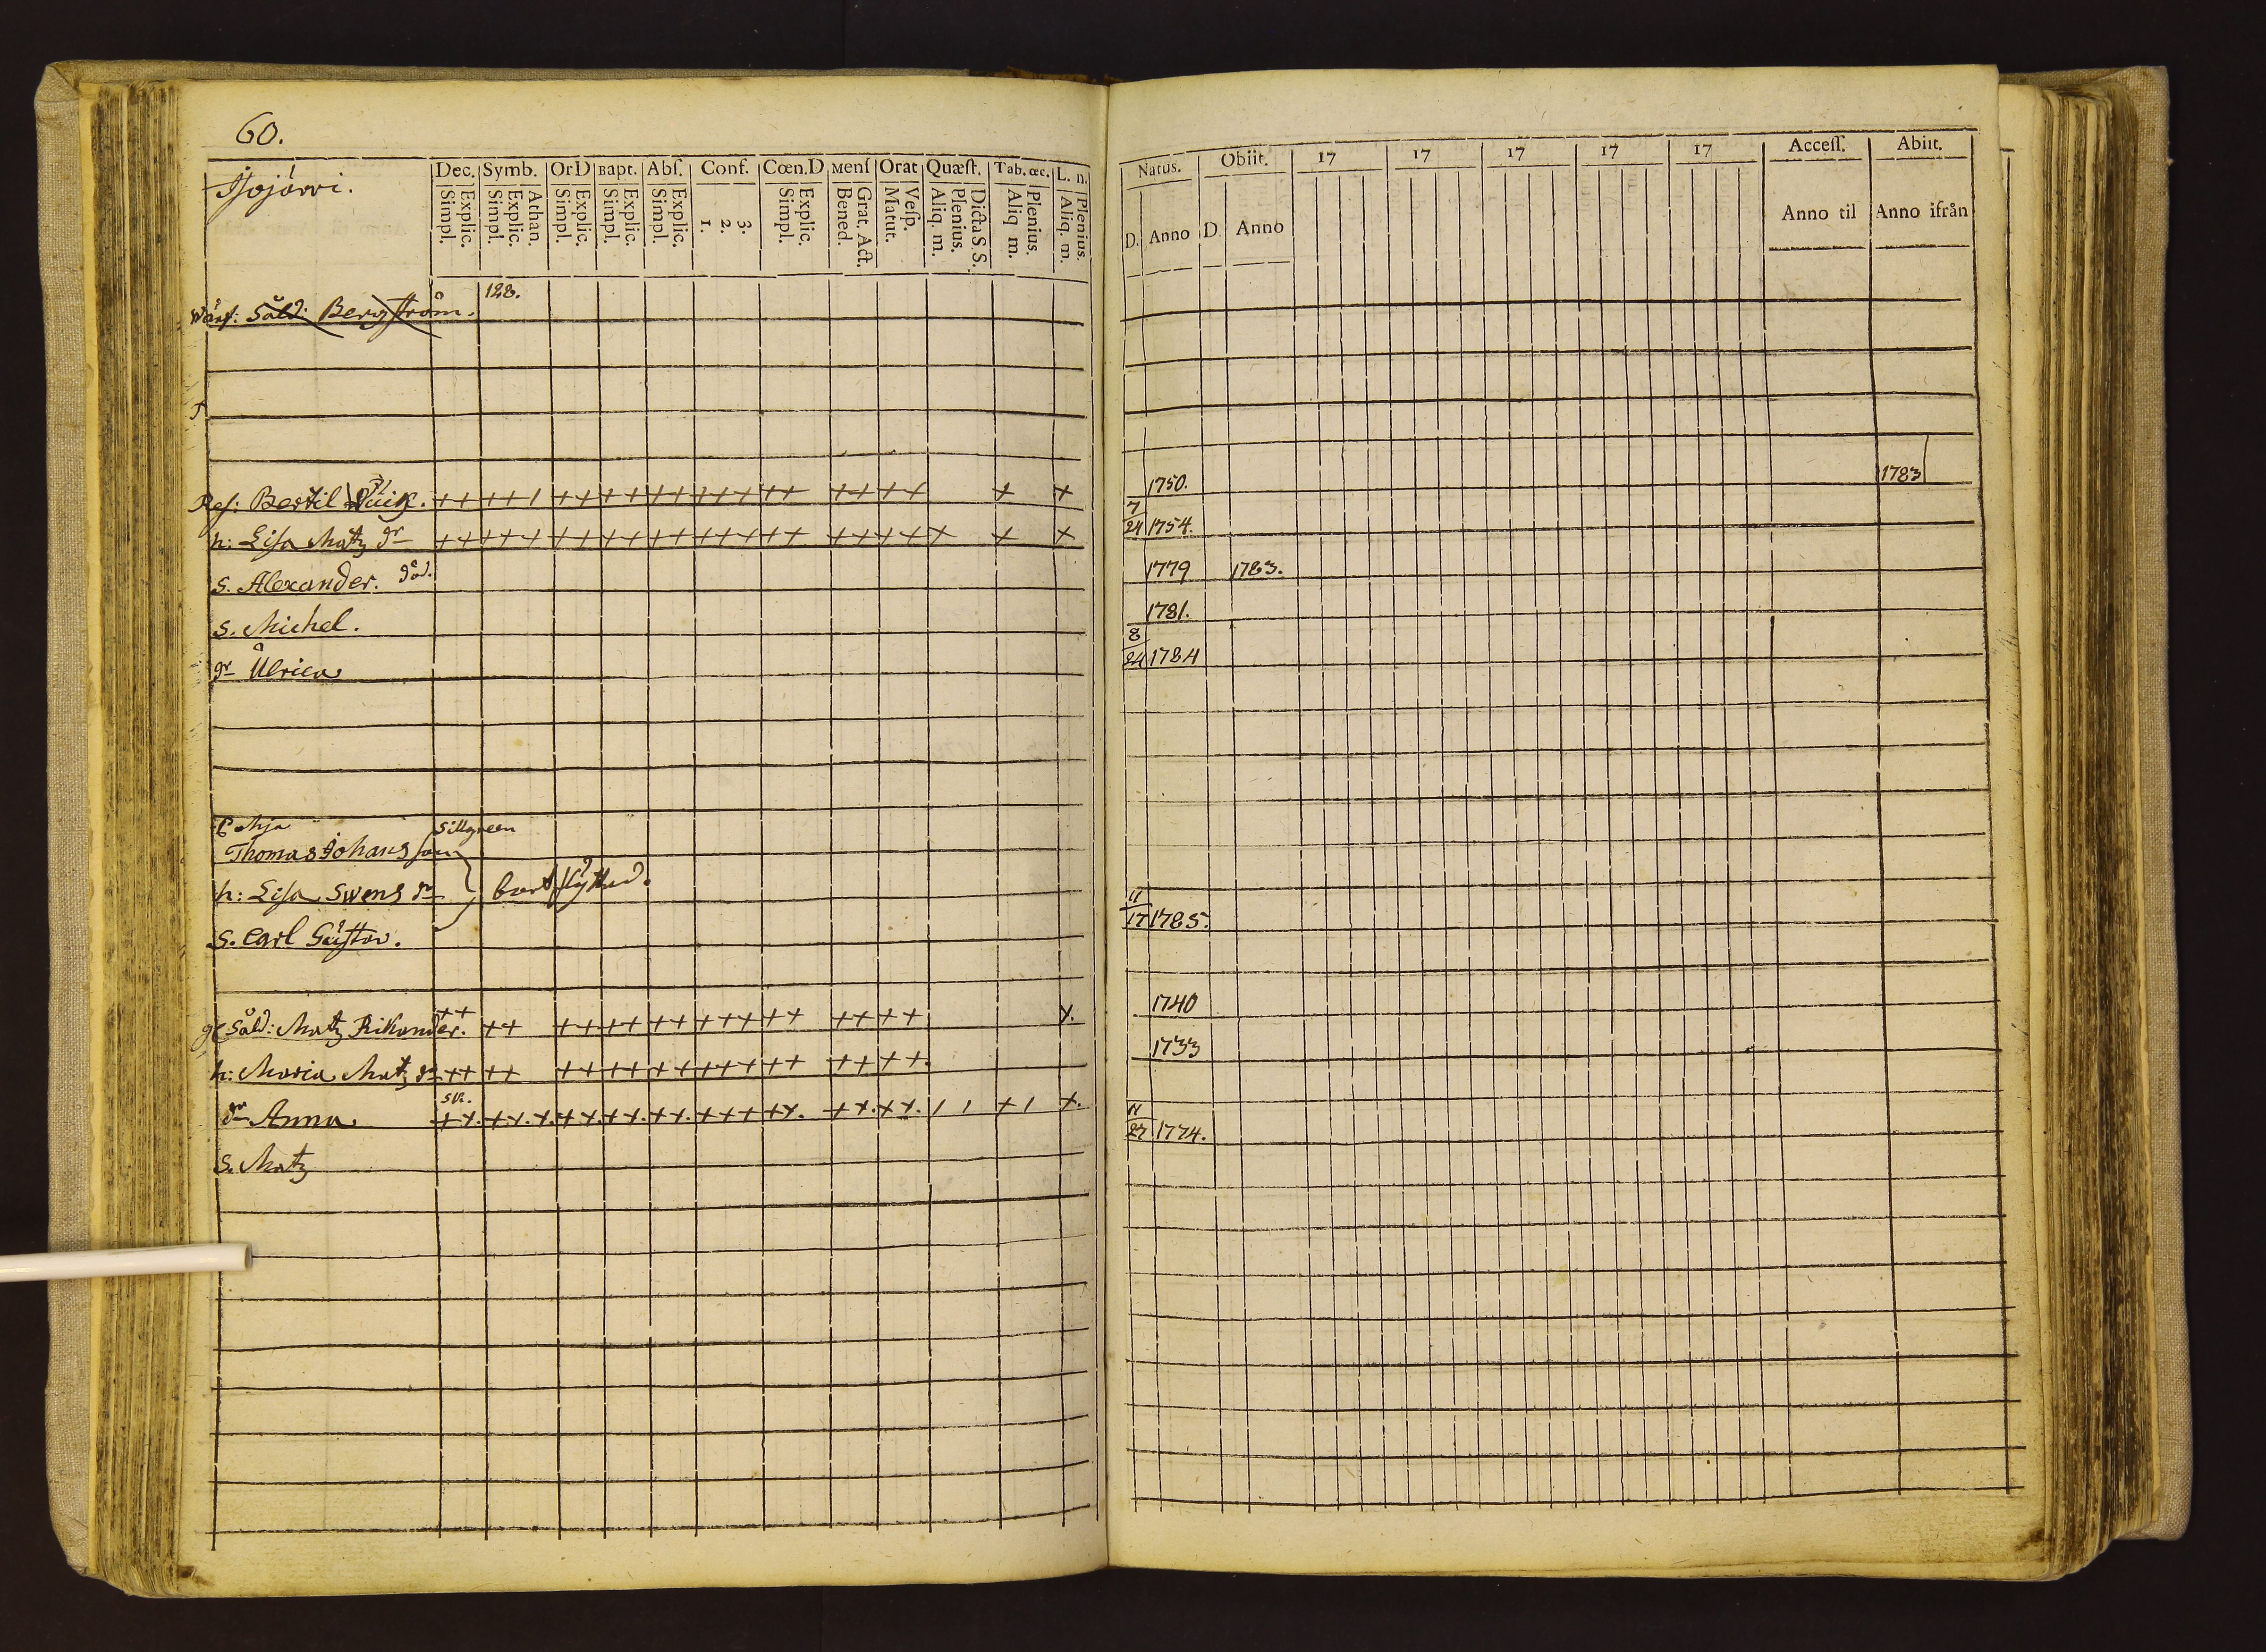 60.
Isojärvi.
Dec. Symb. OrD Bapt. Abſ. Conf. Cœn.D Menſ Orat Quæſt. Tab. œc. L. n.
Simpl. Explic. Simpl. Explic. Athan. Simpl. Explic. Simpl. Explic. Simpl. Explic. 1. 2. 3. Simpl. Explic. Bened. Grat. Act. Matut. Veſp. Aliq. m. Plenius. Dicta S. S. Aliq m. Plenius. Aliq. m. Plenius.
Natus. Obiit. 17 17 17 17 17 Acceſſ. Abiit.
D. Anno D Anno Anno til Anno ifrån
Wärf: Såld: Bergström. 128.
Ref: Bertil ++ ++ 1 ++ ++ ++ +++ ++ ++ ++ + + 1750. 1783
h: Lisa Matz dr ++ +++ ++ ++ ++ +++ ++ ++ ++ + + + 7/24 1754.
S. Alexander. död. 1779 1783.
S. Michel. 1781.
dr Ulrica 8/24 1784
Sillgreen
Thomas Johansson
h: Lisa Swens dr bortflyttad.
S. Carl Gustav. 11/17 1785.
gl Såld: Matz Rikander. ++ ++ ++ ++ ++ +++ ++ ++ ++ x. 1740
h: Maria Matz dr ++ ++ ++ ++ ++ +++ ++ ++ ++. 1733
dr Anna. ++. ++.+. ++. ++. ++. +++ ++. ++. ++. 1 1 + 1 +. 11/27 1774.
S. Matz